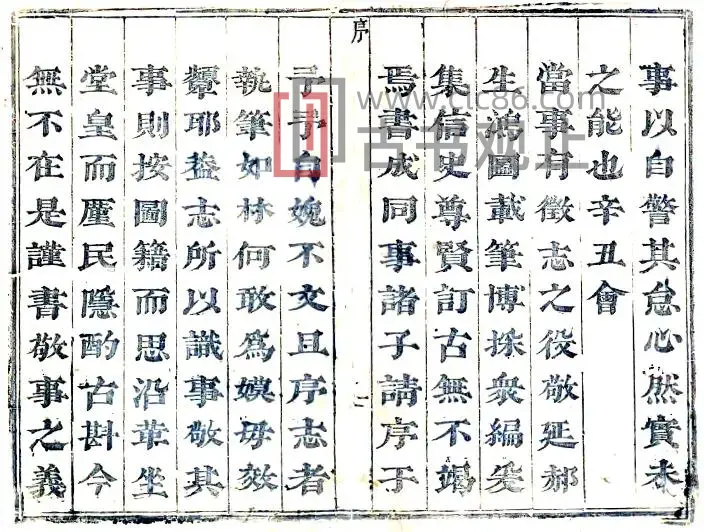 事以自警其怠心然實未
之能也辛丑會
當事有徵志之役敬延郝
生鴻圖載筆博採衆編爰
集信史尊賢訂古無不竭
焉書成同事諸子請序于
序
予予自媿不文且序志者
執筆如林何敢爲嫫母效
顰耶葢志所以識事敬其
事則按圖籍而思沿革坐
堂皇而厪民隱酌古斟今
無不在是謹書敬事之義
www.ctc86.com
古书观止